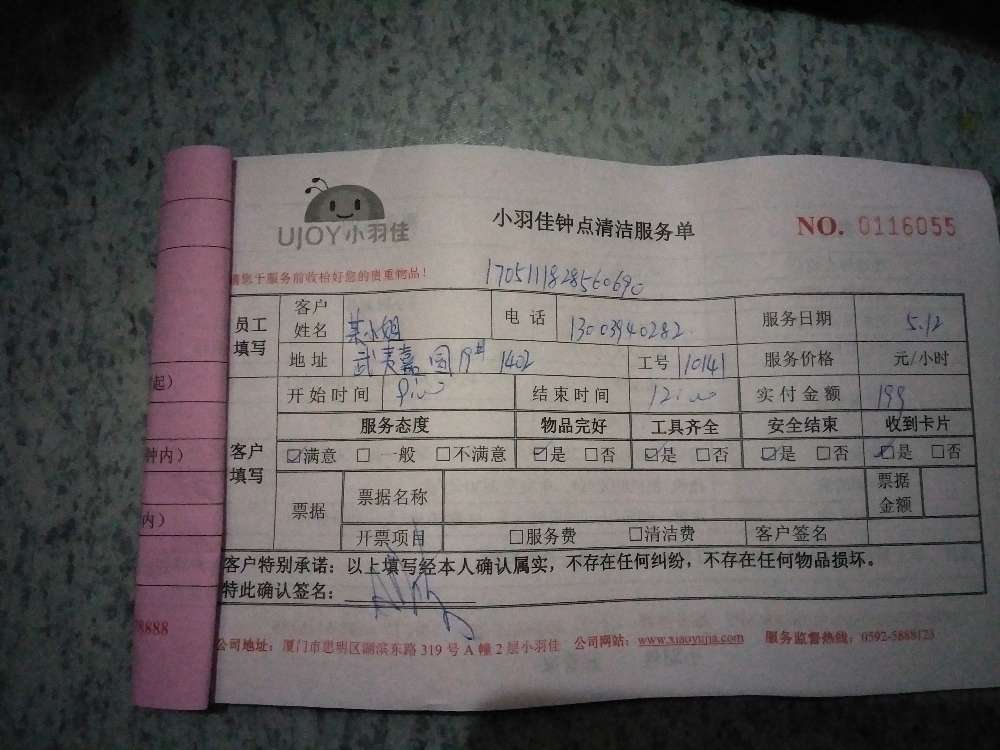 UJOY小羽佳
小羽佳钟点清洁服务单
NO. 0116055
请您于服务前收拾好您的贵重物品！
170511182856069
员工填写 客户姓名 小姐 电话 13003940282 服务日期 5.12
地址 武夷嘉园19# 1402 工号 10141 服务价格 元/小时
开始时间 结束时间 实付金额 199
客户填写 服务态度 物品完好 工具齐全 安全结束 收到卡片
☑满意 □一般 □不满意 ☑是 □否 ☑是 □否 ☑是 □否 ☑是 □否
票据 票据名称 票据金额
开票项目 □服务费 □清洁费 客户签名
客户特别承诺：以上填写经本人确认属实，不存在任何纠纷，不存在任何物品损坏。
特此确认签名：
公司地址：厦门市思明区湖滨东路 319 号 A 幢 2 层小羽佳 公司网站：www.xiaoyujia.com 服务监督热线：0592-5888123
起）
钟内）
内）
8888